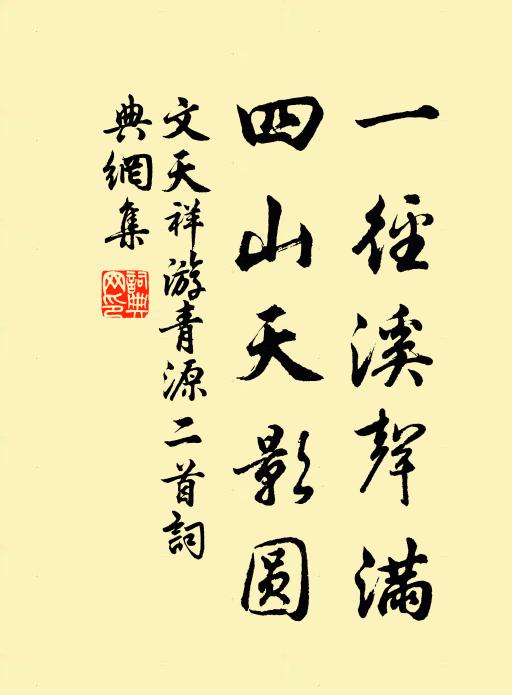 一徑溪聲滿
四山天影圓
文天祥游青源二首詞
典網集
詞典网印